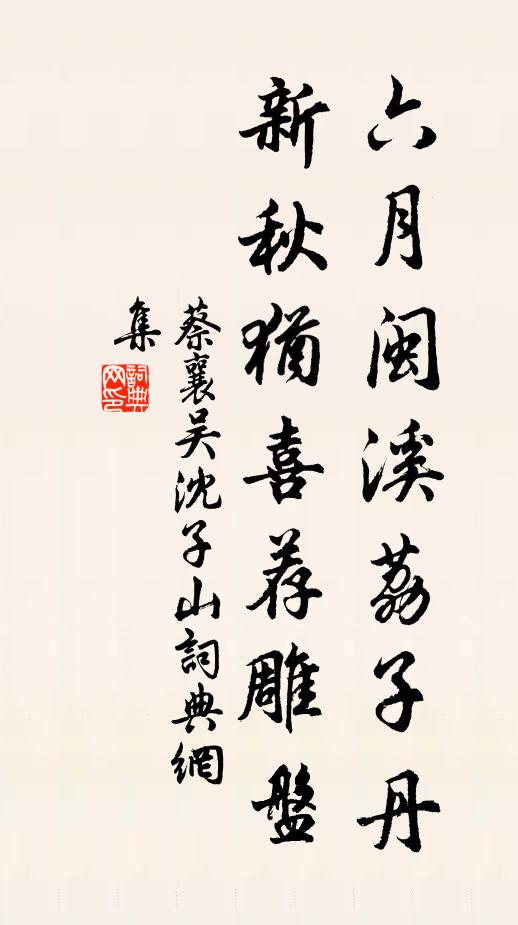 六月闽溪荔子丹
新秋猶喜荐雕盤
蔡襄吴沈子山詞典網
集
詞典
网印